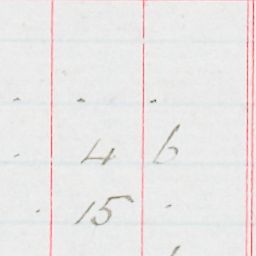 . . .
. 4 6
. 15 .